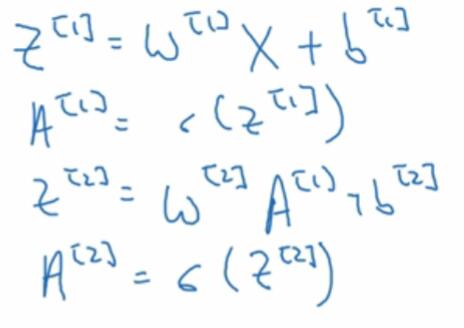 Z^[1] = W^[1] X + b^[1]
A^[1] = σ(Z^[1])
Z^[2] = W^[2] A^[1] + b^[2]
A^[2] = σ(Z^[2])